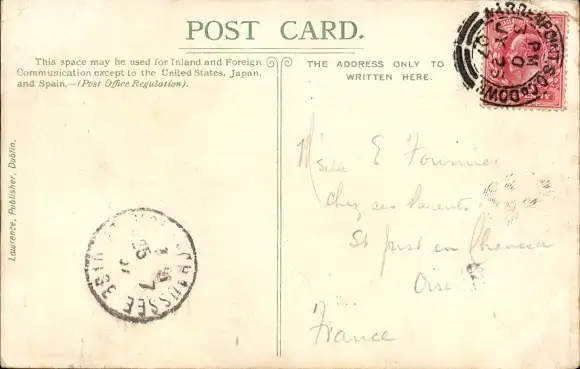 POST CARD.
This space may be used for Inland and Foreign
Communication except to the United States, Japan,
and Spain.—(Post Office Regulation).
THE ADDRESS ONLY TO
WRITTEN HERE.
Lawrence, Publisher, Dublin.
Mselle E Fournier
Chez ses Parents
St Just en Chaussée
Oise
France